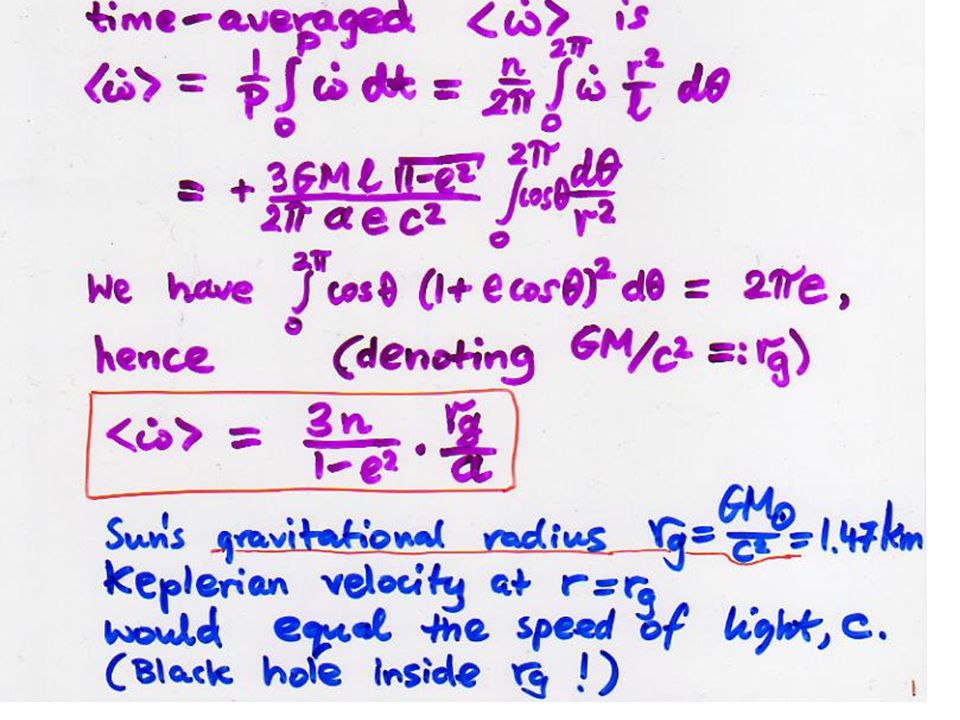 time-averaged <ω̇> is
<ω̇> = 1/P ∫₀ᴾ ω̇ dt = n/2π ∫₀²π ω̇ r²/L dθ
= + 3GMl√1-e² / 2π a e c² ∫₀²π cosθ dθ/r²
We have ∫₀²π cosθ (1+ e cosθ)² dθ = 2πe,
hence (denoting GM/c² =: rg)
<ω̇> = 3n/1-e² · rg/a
Sun's gravitational radius rg = GM⊙/c² = 1.47 km
Keplerian velocity at r=rg
would equal the speed of light, c.
(Black hole inside rg !)